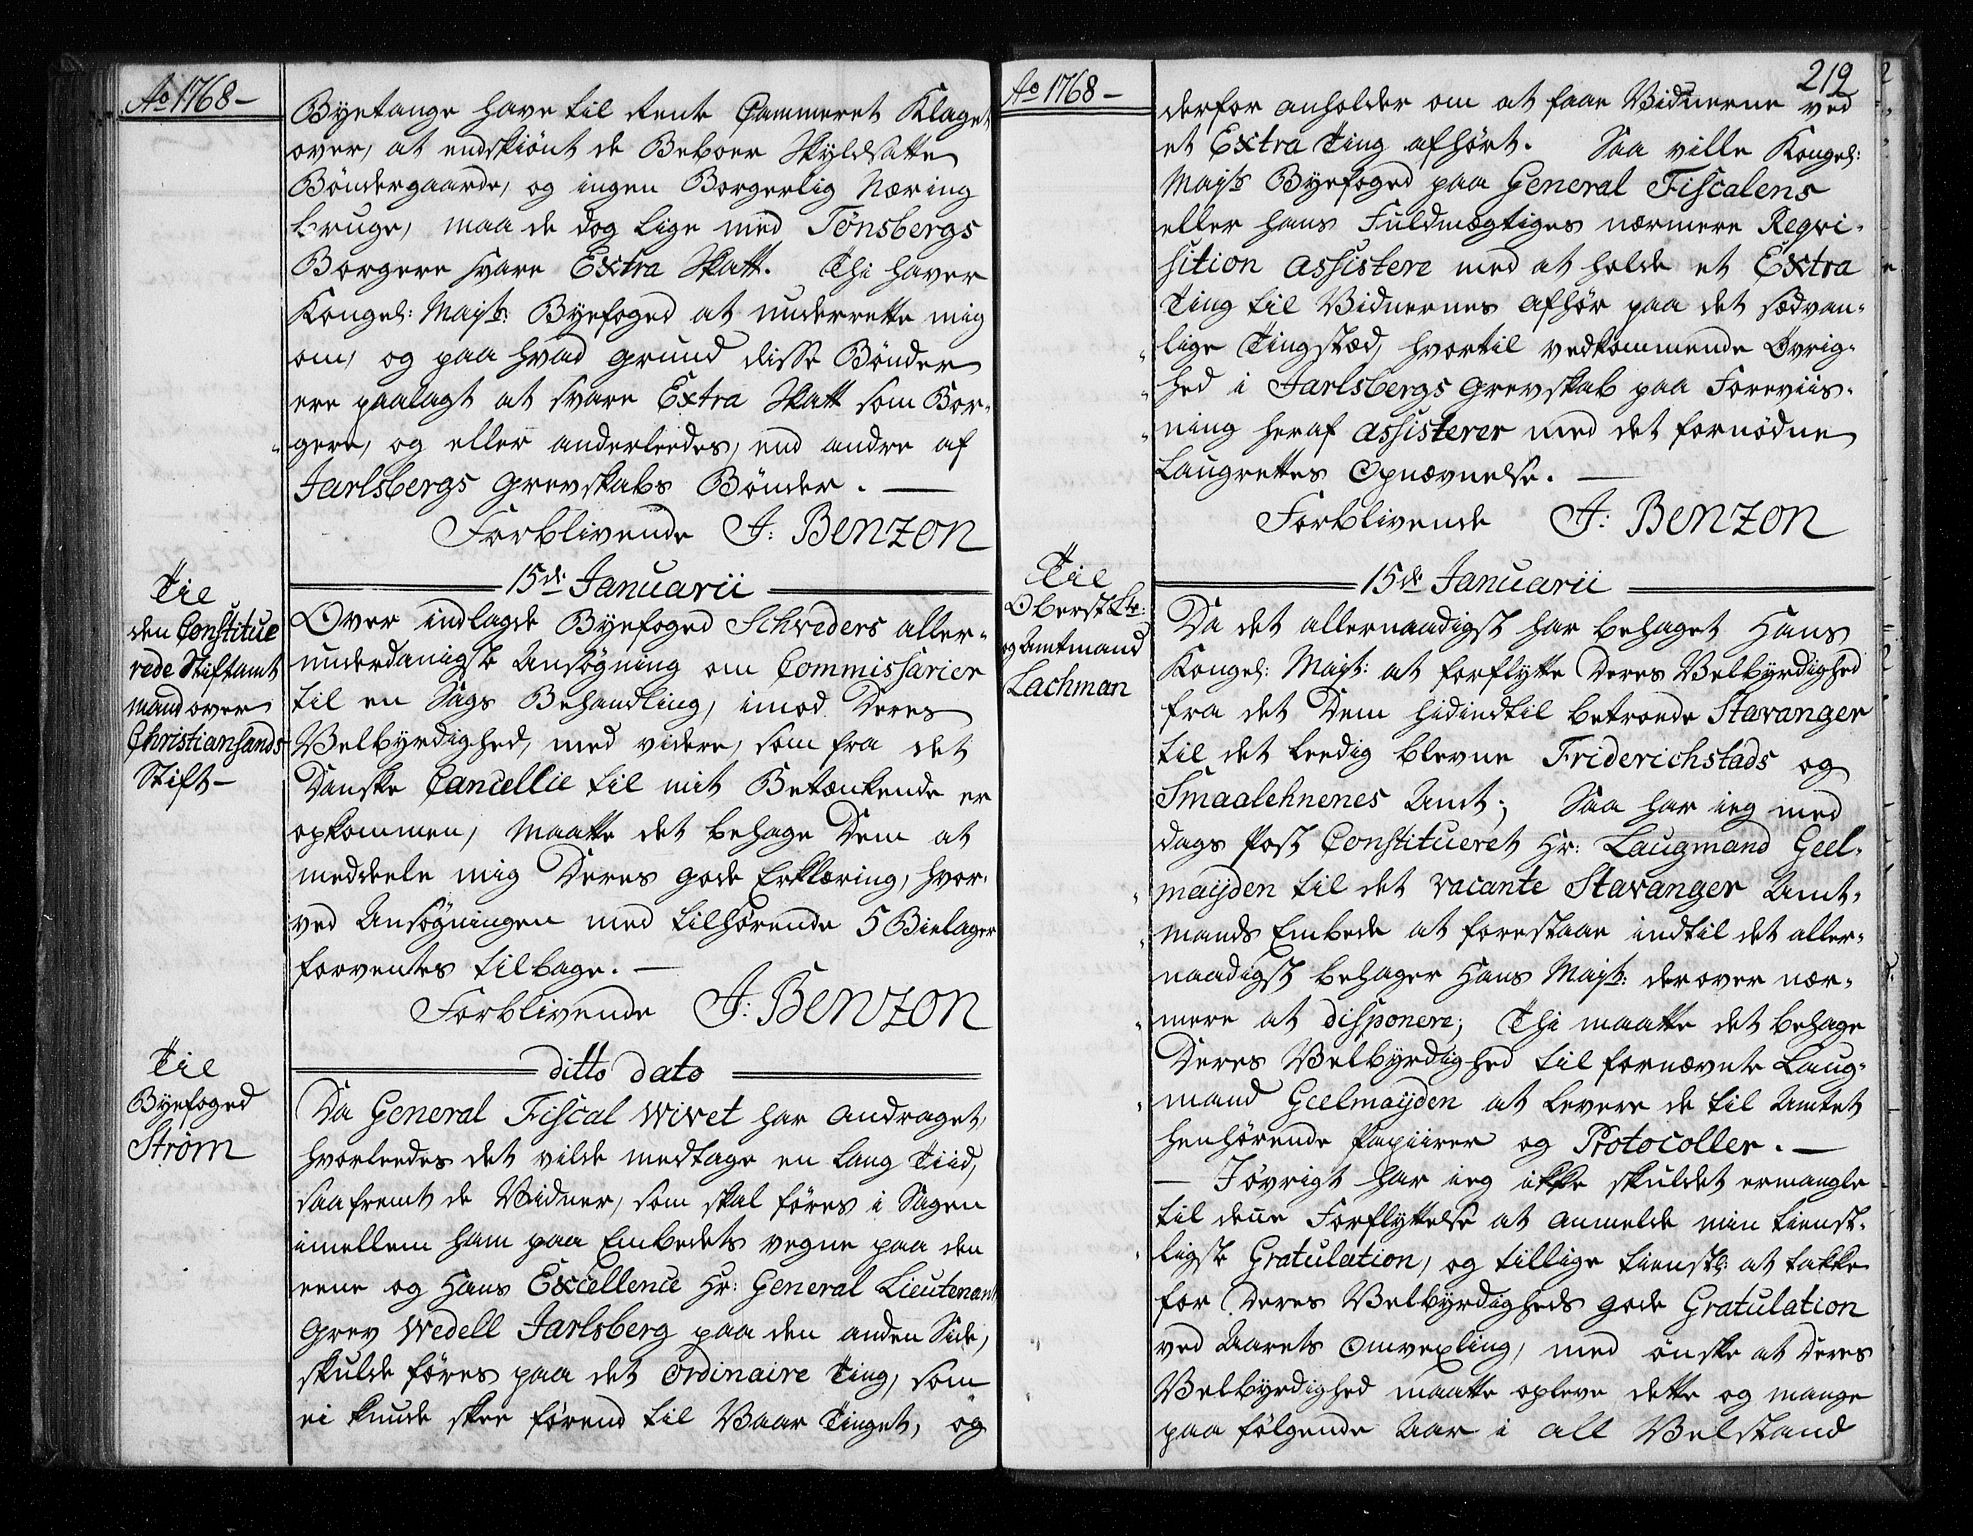 Ao 1768-
Byetange have til Rente Cammeret Klaget
over, at endskiönt de Beboer Skyldsatte
Böndergaarde, og ingen Borgerlig Næring
bruge, maa de dog lige med Tönsbergs
Borgere svare Extra Skatt. Thi haver
Kongel: Mayts: Byefoged at underrette mig
om, og paa hvad grund disse Bönder
ere paalagt at svare Extra Skatt som Bor-
gere, og eller anderleedes, end andre af
Jarlsbergs Grevskabs Bönder. —
Forblivende J: Benzon
Til
den Constitue
rede Stiftamt
mand over
Christiansands
Stift-
15de Januarii
Over indlagde Byefoged Schreders aller-
underdanigste Ansögning om Commissarier
til en Sags Behandling, imod Deres
Velbyrdighed, med videre, som fra det
Danske Cancellie til mit Betænkende er
opkommen, Maatte det behage Dem at
meddeele mig Deres gode Erklæring, hvor-
ved Ansögningen med tilhörende 5 Bielager
forventes tilbage. —
Forblivende J: Benzon
Til
Byefoged
Ström
ditto dato
Da General Fiscal Wivet har andraget,
hvorleedes det vilde medtage en lang Tiid,
saafremt de Vidner, som skal föres i Sagen
imellem ham paa Embedets vegne paa den
eene og Hans Excellence Hr: General Lieutenant
Grev Wedell Jarlsberg paa den anden Side,
skulde föres paa det ordinaire Ting, som
ei kunde skee förend til Vaar Tinget, og
Ao 1768-
219
derfor anholder om at faae Vidnerne ved
et Extra Ting afhört. Saa ville Kongel:
Mayts Byefoged paa General Fiscalens
eller hans Fuldmægtiges nærmere Reqvi-
sition assistere med at holde et Extra
Ting til Vidnernes afhör paa det sædvan-
lige Tingstæd, hvortil vedkommende Övrig-
hed i Jarlsbergs Grevskab paa Foreviis-
ning heraf assisterer med det fornödne
Laugrettes Opnævnelse. —
Forblivende J: Benzon
Til
Oberst Ltn:
og Amtmand
Lachman
15de Januarii
Da det allernaadigst har behaget Hans
Kongel: Mayt: at forflytte Deres Velbyrdighed
fra det Dem hidindtil betroede Stavanger
til det leedig blevne Friderichstads og
Smaalehnenes Amt; Saa har ieg med
dags Post Constitueret Hr: Laugmand Geel-
mayden til det vacante Stavanger Amt-
mands Embede at forestaae indtil det aller-
naadigst behager Hans Mayts: derover nær-
mere at disponere; Thi maatte det behage
Deres Velbyrdighed til fornævnte Laug-
mand Geelmayden at levere de til Amtet
henhörende Papiirer og Protocoller. —
— Jövrigt har ieg ikke skuldet ermangle
til denne Forflyttelse at anmelde min tienst-
ligste Gratulation, og tillige tienstl: at takke
for Deres Velbyrdigheds gode Gratulation
ved Aarets Omvexling, med önske at Deres
Velbyrdighed maatte opleve dette og mange
paa fölgende Aar i all Velstand